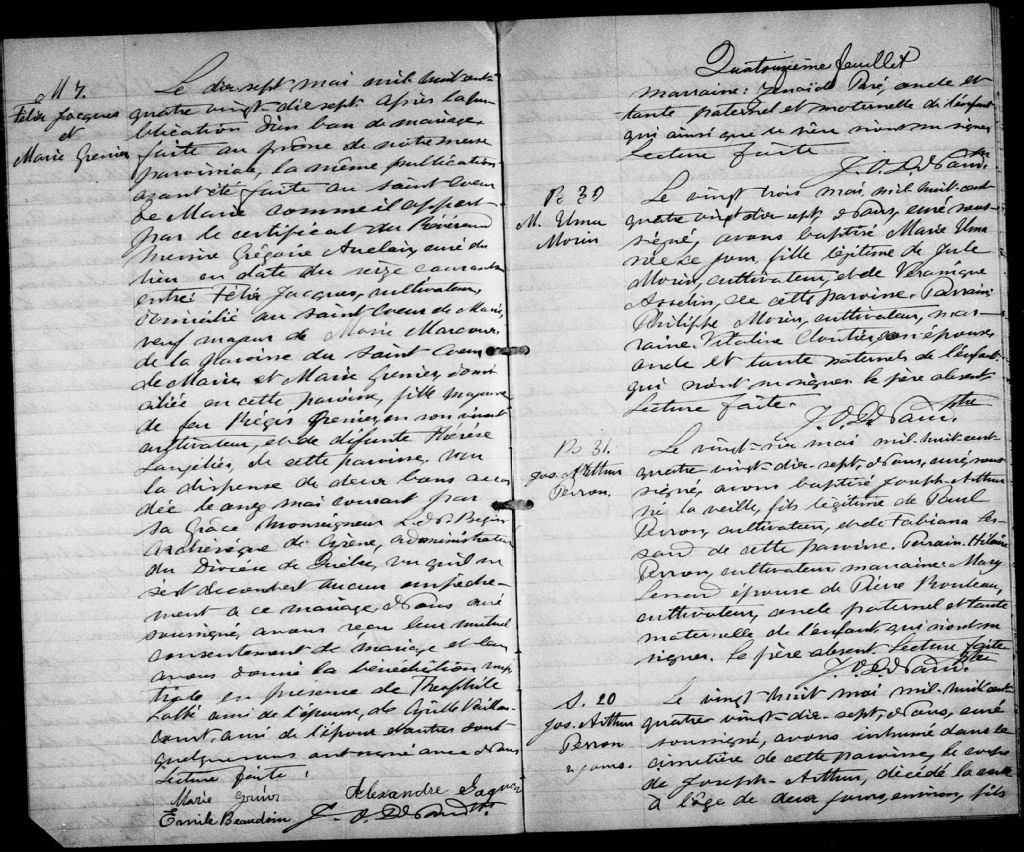 M 7.
Félix Jacques
et
Marie Grenier
Le dix sept mai mil huit cent
quatre vingt dix sept après la pu-
blication d'un ban de mariage
faite au prône de notre messe
paroissiale, la même publication
ayant été faite au Saint Coeur
de Marie comme il appert
par le certificat du Révérend
messire Grégoire Auclair, curé du
lieu en date du seize courant
entre: Félix Jacques, cultivateur,
domicilié au Saint Coeur de Marie,
veuf majeur de Marie Marcoux,
de la paroisse du Saint Coeur
de Marie, et Marie Grenier, domi
ciliée en cette paroisse, fille majeure
de feu Régis Grenier, en son vivant
cultivateur, et de défunte Thérèse
Langelier, de cette paroisse. Vu
la dispense de deux bans accor
dée le onze mai courant par
sa Grâce Monseigneur L. N. Bégin
Archevêque de Cyrène, administrateur
du Diocèse de Québec, vu qu'il ne
s'est découvert aucun empêche-
ment à ce mariage, Nous curé
soussigné, avons reçu leur mutuel
consentement de mariage et leur
avons donné la bénédiction nup
tiale en présence de Théophile
Labbé ami de l'épouse, de Cyrille Vaillan-
court, ami de l'époux et autres dont
quelques uns ont signé avec Nous
Lecture faite.
Marie Grenier Alexandre
Emile Beaudoin J. O. D. Ptre
Quatorzième feuillet
marraine: Zénaïde Paré, oncle et
tante paternel et maternelle de l'enfant
qui ainsi que le père n'ont su signer
Lecture faite
J. O. D. Ptre
B 30
M. Elma
Morin
Le vingt trois mai mil huit cent
quatre vingt dix sept, Nous, curé sous-
signé, avons baptisé Marie Elma
née ce jour, fille légitime de Jules
Morin, cultivateur, et de Véronique
Asselin, de cette paroisse. Parrain:
Philippe Morin, cultivateur, mar-
raine: Vitaline Cloutier son épouse,
oncle et tante paternels de l'enfant
qui n'ont su signer le père absent
Lecture faite.
J. O. D. Ptre
B 31.
Jos. Arthur
Perron.
Le vingt-six mai mil huit cent
quatre vingt-dix-sept, Nous, curé, sous
signé, avons baptisé Joseph-Arthur
né la veille, fils légitime de Paul
Perron, cultivateur, et de Fabiana Les-
sard de cette paroisse. Parrain: Hilaire
Perron, cultivateur marraine: Mary
Lessard épouse de Pierre Rouleau,
cultivateur, oncle paternel et tante
maternelle de l'enfant, qui n'ont su
signer. Le père absent. Lecture faite
J. O. D. Ptre
S. 20
Jos. Arthur
Perron
2 jours.
Le vingt huit mai mil-huit cent
quatre vingt-dix-sept, Nous, curé
soussigné, avons inhumé dans le
cimetière de cette paroisse, le corps
de Joseph-Arthur, décédé la veille
à l'âge de deux jours, environ, fils